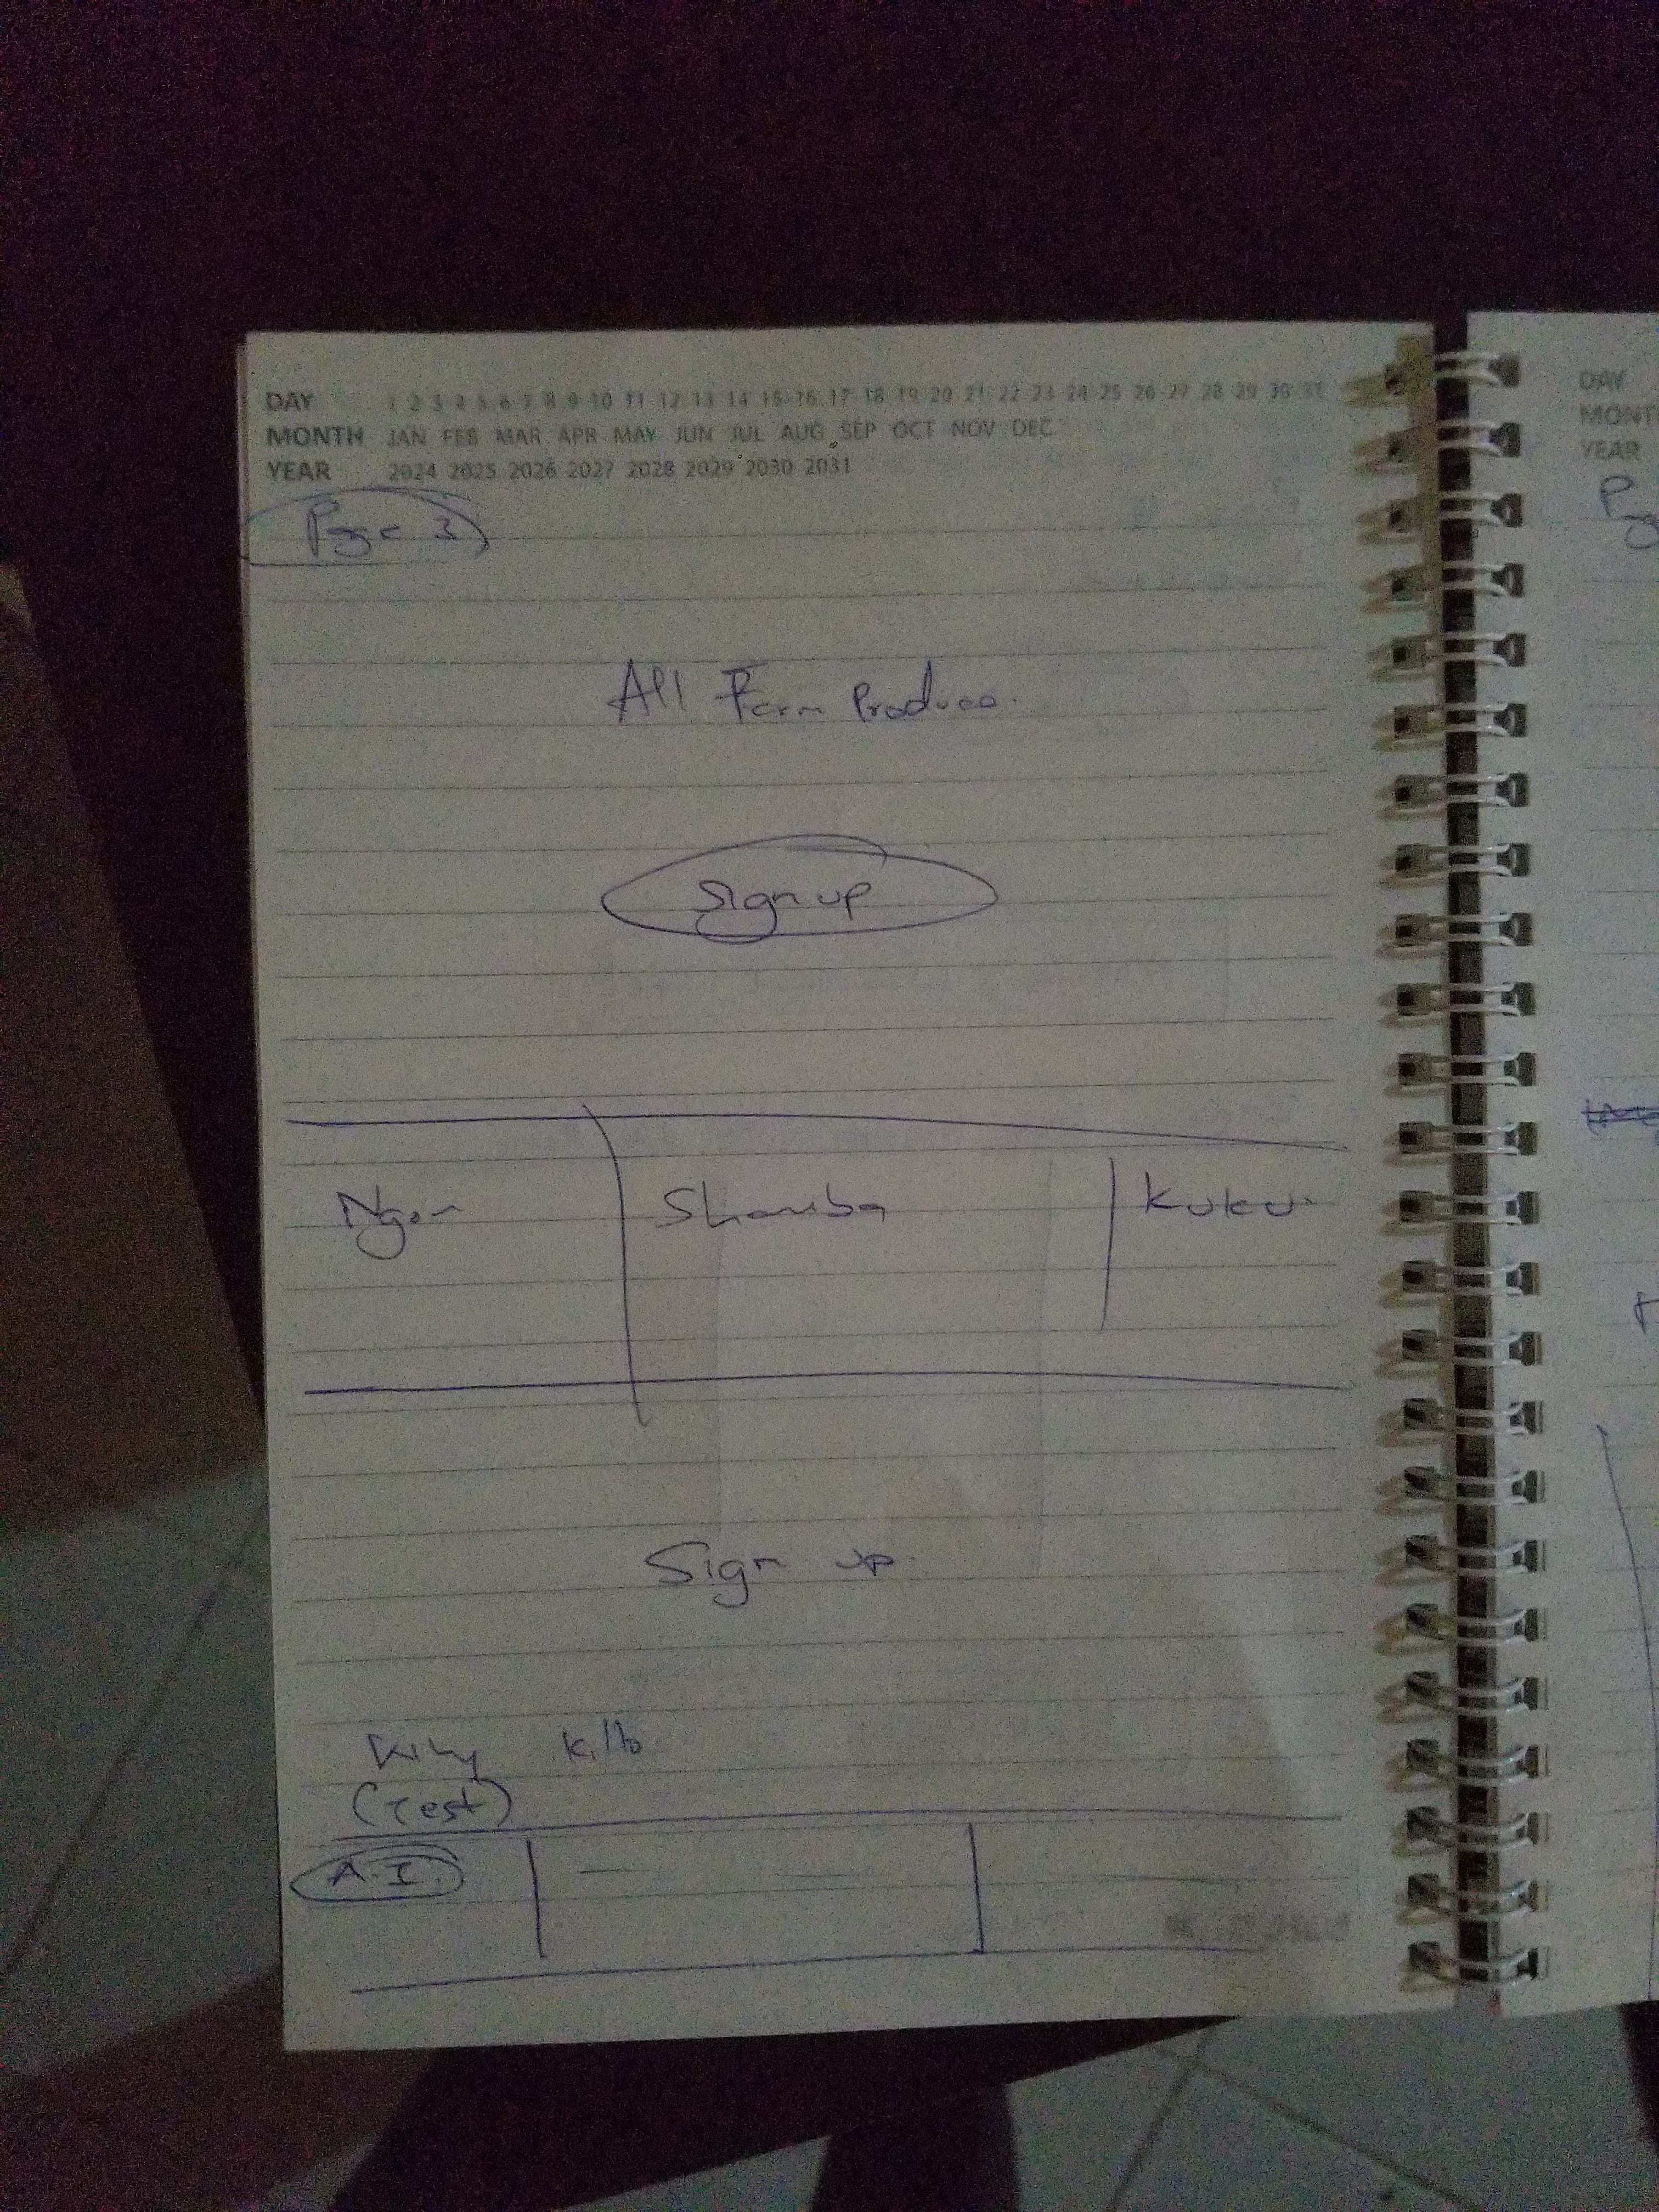 DAY 1 2 3 4 5 6 7 8 9 10 11 12 13 14 15 16 17 18 19 20 21 22 23 24 25 26 27 28 29 30 31
MONTH JAN FEB MAR APR MAY JUN JUL AUG SEP OCT NOV DEC
YEAR 2024 2025 2026 2027 2028 2029 2030 2031
Page 3
All Farm Produce.
Sign up
Shamba Kuku
Sign up.
(Test)
A.I.
DAY
MONT
YEAR